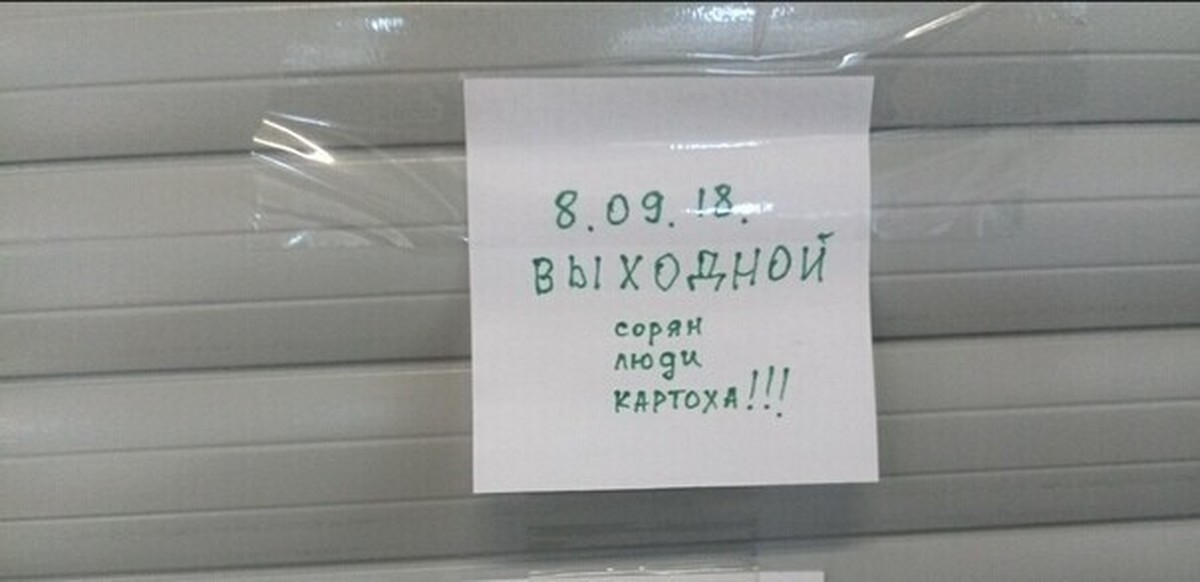 8.09.18.
ВЫХОДНОЙ
сорян
люди
КАРТОХА!!!